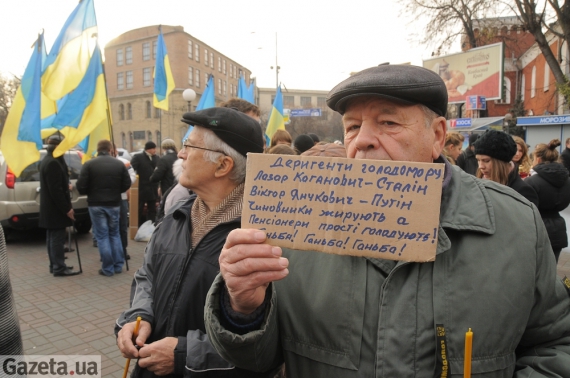 Деригенти голодомору
Лазар Коганович-Сталін
Віктор Янукович-Путін
Чиновники жирують а
Пенсіонери прості голодують!
Ганьба! Ганьба! Ганьба!
Gazeta.ua